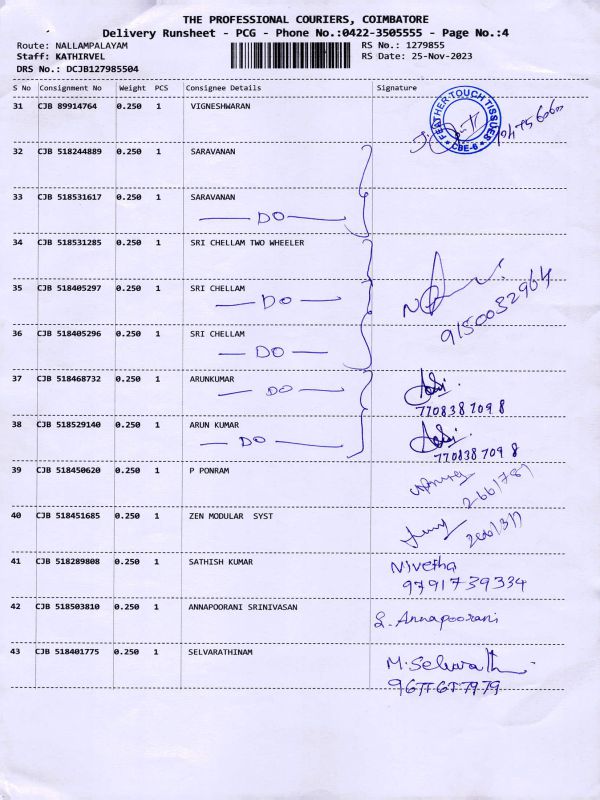 THE PROFESSIONAL COURIERS, COIMBATORE
Delivery Runsheet - PCG - Phone No.:0422-3505555 - Page No.:4
Route: NALLAMPALAYAM RS No.: 1279855
Staff: KATHIRVEL RS Date: 25-Nov-2023
DRS No.: DCJB127985504
S No Consignment No Weight PCS Consignee Details Signature
31 CJB 89914764 0.250 1 VIGNESHWARAN
FEATHER TOUCH TISSUES
CBE-6
32 CJB 518244889 0.250 1 SARAVANAN
33 CJB 518531617 0.250 1 SARAVANAN
DO
34 CJB 518531285 0.250 1 SRI CHELLAM TWO WHEELER
35 CJB 518405297 0.250 1 SRI CHELLAM
DO
9150032964
36 CJB 518405296 0.250 1 SRI CHELLAM
DO
37 CJB 518468732 0.250 1 ARUNKUMAR
DO
7708387098
38 CJB 518529140 0.250 1 ARUN KUMAR
DO
7708387098
39 CJB 518450620 0.250 1 P PONRAM
40 CJB 518451685 0.250 1 ZEN MODULAR SYST
41 CJB 518289808 0.250 1 SATHISH KUMAR Nivetha
9791739334
42 CJB 518503810 0.250 1 ANNAPOORANI SRINIVASAN S. Annapoorani
43 CJB 518401775 0.250 1 SELVARATHINAM
M. Selvarath
9677677979